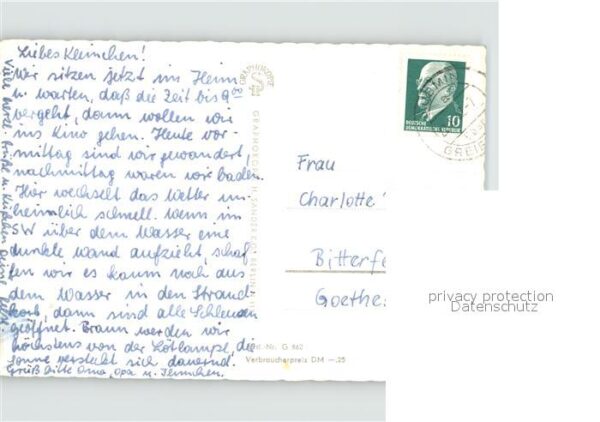 Liebes Kleinchen!
Wir sitzen jetzt im Heim
u. warten, daß die Zeit bis 9
vergeht, dann wollen wir
ins Kino gehen. Heute vor-
mittag sind wir gewandert,
nachmittag waren wir baden.
Hier wechselt das Wetter un-
heimlich schnell. Wenn im
SW über dem Wasser eine
dunkle Wand aufzieht, schaf-
fen wir es kaum noch aus
dem Wasser in den Strand-
korb, dann sind alle Schleusen
geöffnet. Braun werden wir
höchstens von der Lötlampe, die
Sonne versteckt sich dauernd.
Grüß bitte Oma, Opa u.
Viele herzl. Grüße u. Küßchen Deine
GRAPHOKOPIE
GRAPHOKOPIE H. SANDER KG. BERLIN
Frau
Charlotte
Bitterfe
Goethe
10
DEUTSCHE
DEMOKRATISCHE REPUBLIK
G 862
Verbraucherpreis DM -,25
privacy protection
Datenschutz